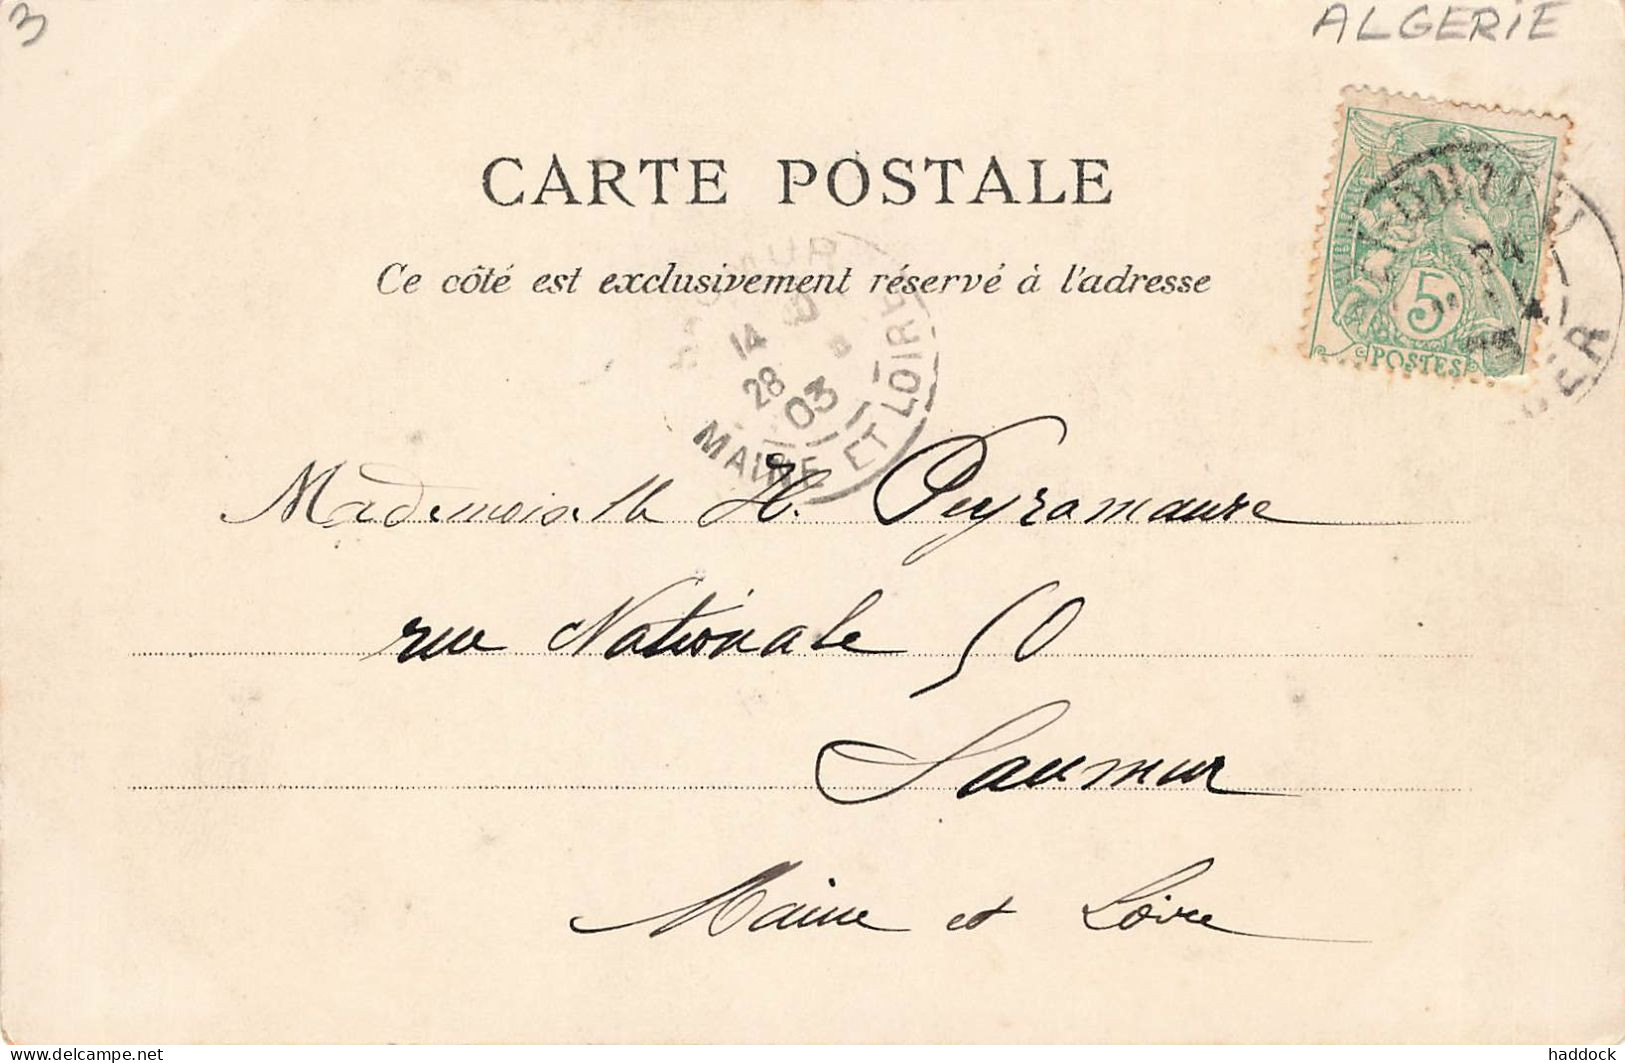 3
ALGERIE
CARTE POSTALE
Ce côté est exclusivement réservé à l'adresse
5
POSTES
SAUMUR
14
28
03
MAINE ET LOIRE
Mademoiselle H. Peyramaure
rue Nationale 50
Saumur
Maine et Loire
delcampe.net
haddock